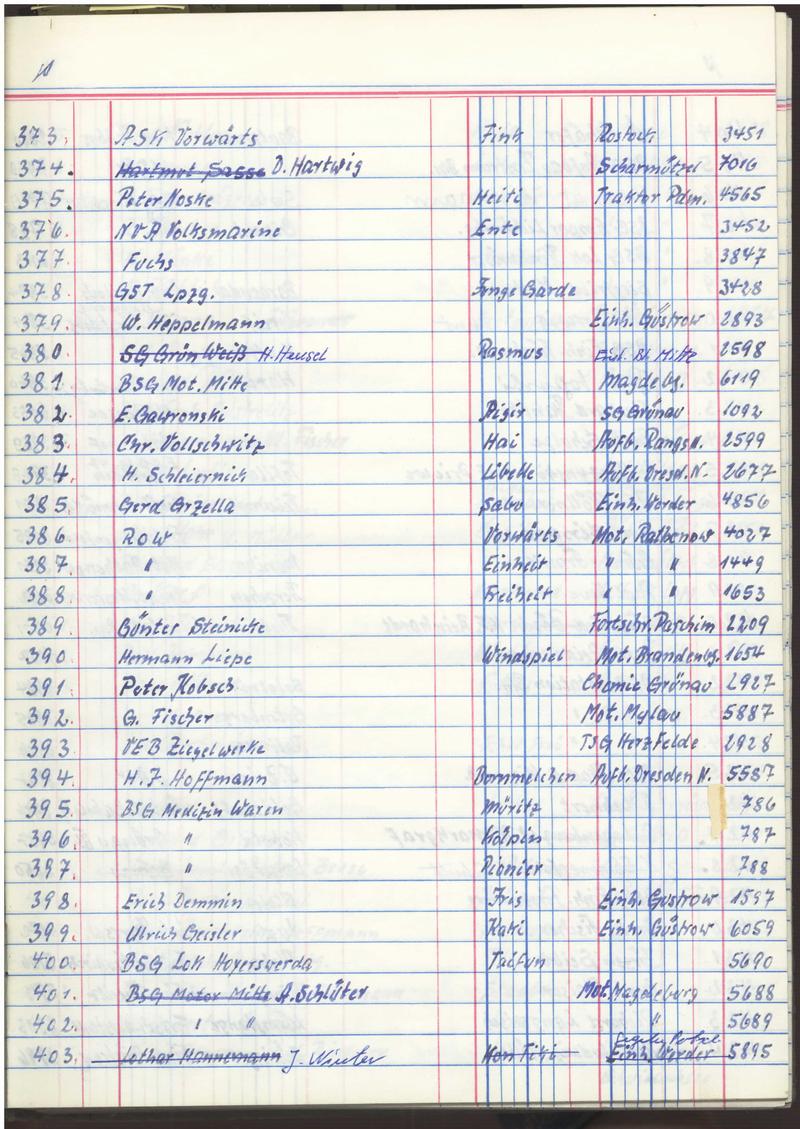 373. ASK Vorwärts Fink Rostock 3451
374. Hartmut Sasse D. Hartwig Scharmützel 7016
375. Peter Noske Heiti Traktor Pdm. 4565
376. NVA Volksmarine Ente 3452
377. Fuchs 3847
378. GST Lpzg. Junge Garde 3428
379. W. Heppelmann Einh. Güstrow 2893
380. SG Grün Weiß H. Hensel Rasmus Einh. Bl. Mitte 2598
381. BSG Mot. Mitte Magdebg. 6119
382. E. Gawronski Aigir SG Grünau 1092
383. Chr. Vollschwitz Hai Aufb. Rangsd. 2599
384. H. Schleiernick Libelle Aufb. Dresd. N. 2677
385. Gerd Grzella Sabu Einh. Werder 4856
386. ROW Vorwärts Mot. Rathenow 4027
387. " Einheit " " 1449
388. " Freiheit " " 1653
389. Günter Steinicke Fortschr. Parchim 2209
390. Hermann Liepe Windspiel Mot. Brandenbg. 1654
391. Peter Kobsch Chemie Grünau 2927
392. G. Fischer Mot. Mylau 5887
393. VEB Ziegelwerke TSG Herzfelde 2928
394. H. J. Hoffmann Bommelchen Aufb. Dresden N. 5587
395. BSG Medizin Waren Müritz 786
396. " Kölpin 787
397. " Pionier 788
398. Erich Demmin Iris Einh. Güstrow 1597
399. Ulrich Geisler Kaki Einh. Güstrow 6059
400. BSG Lok Hoyerswerda Taifun 5690
401. BSG Motor Mitte A. Schlüter Mot. Magdeburg 5688
402. " " " 5689
403. Lothar Hannemann J. Winter Kon Tiki Einh. Werder 5895